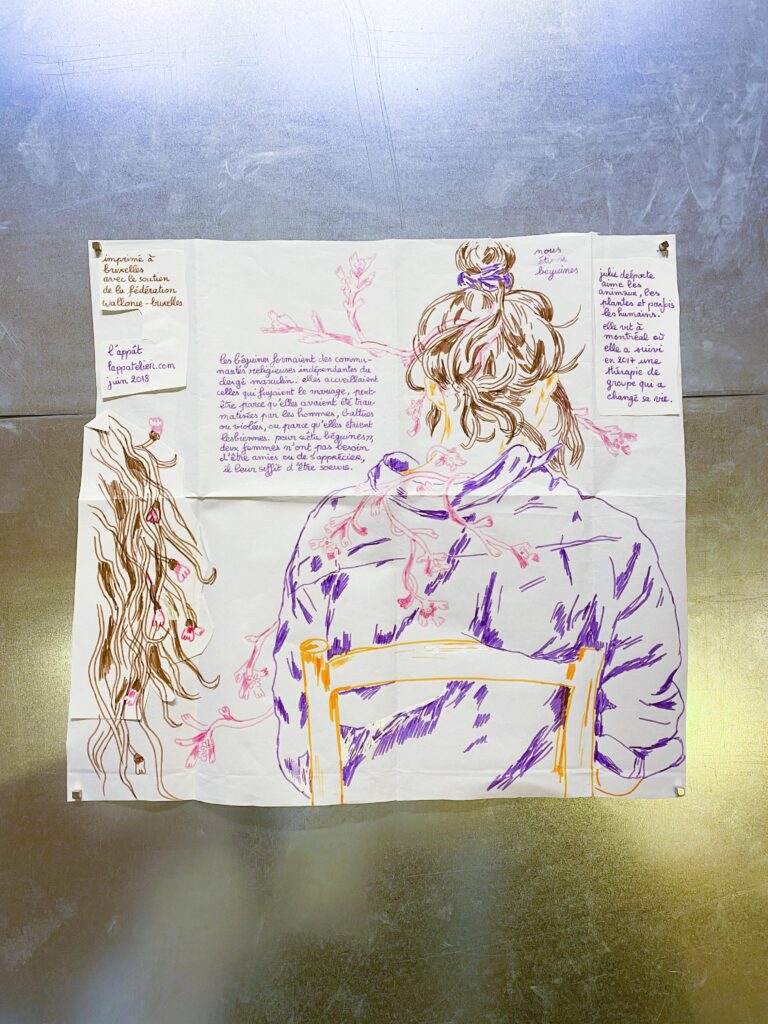 imprimé à
bruxelles
avec le soutien
de la fédération
wallonie-bruxelles
l'appât
lappatelier.com
juin 2018
les béguines formaient des commu-
nautés religieuses indépendantes du
clergé masculin. elles accueillaient
celles qui fuyaient le mariage, peut-
être parce qu'elles avaient été trau-
matisées par les hommes, battues
ou violées, ou parce qu'elles étaient
lesbiennes. pour cette béguine,
deux femmes n'ont pas besoin
d'être amies ou de s'apprécier,
il leur suffit d'être sœurs.
nous
étions
béguines
julie delporte
aime les
animaux, les
plantes et parfois
les humains.
elle vit à
montréal où
elle a suivi
en 2017 une
thérapie de
groupe qui a
changé sa vie.